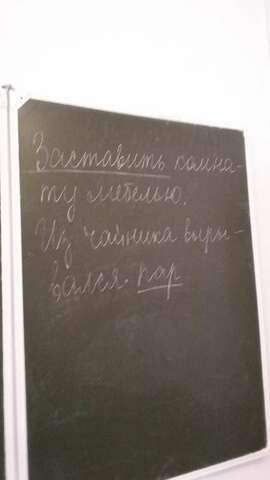 Заставить комна-
ту мебелью.
Из чайника выры-
вался пар